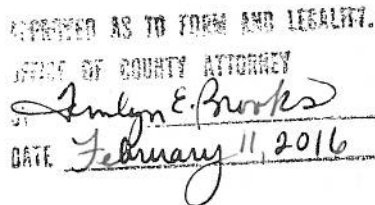 APPROVED AS TO FORM AND LEGALITY.
OFFICE OF COUNTY ATTORNEY
E. Brooks
DATE February 11, 2016